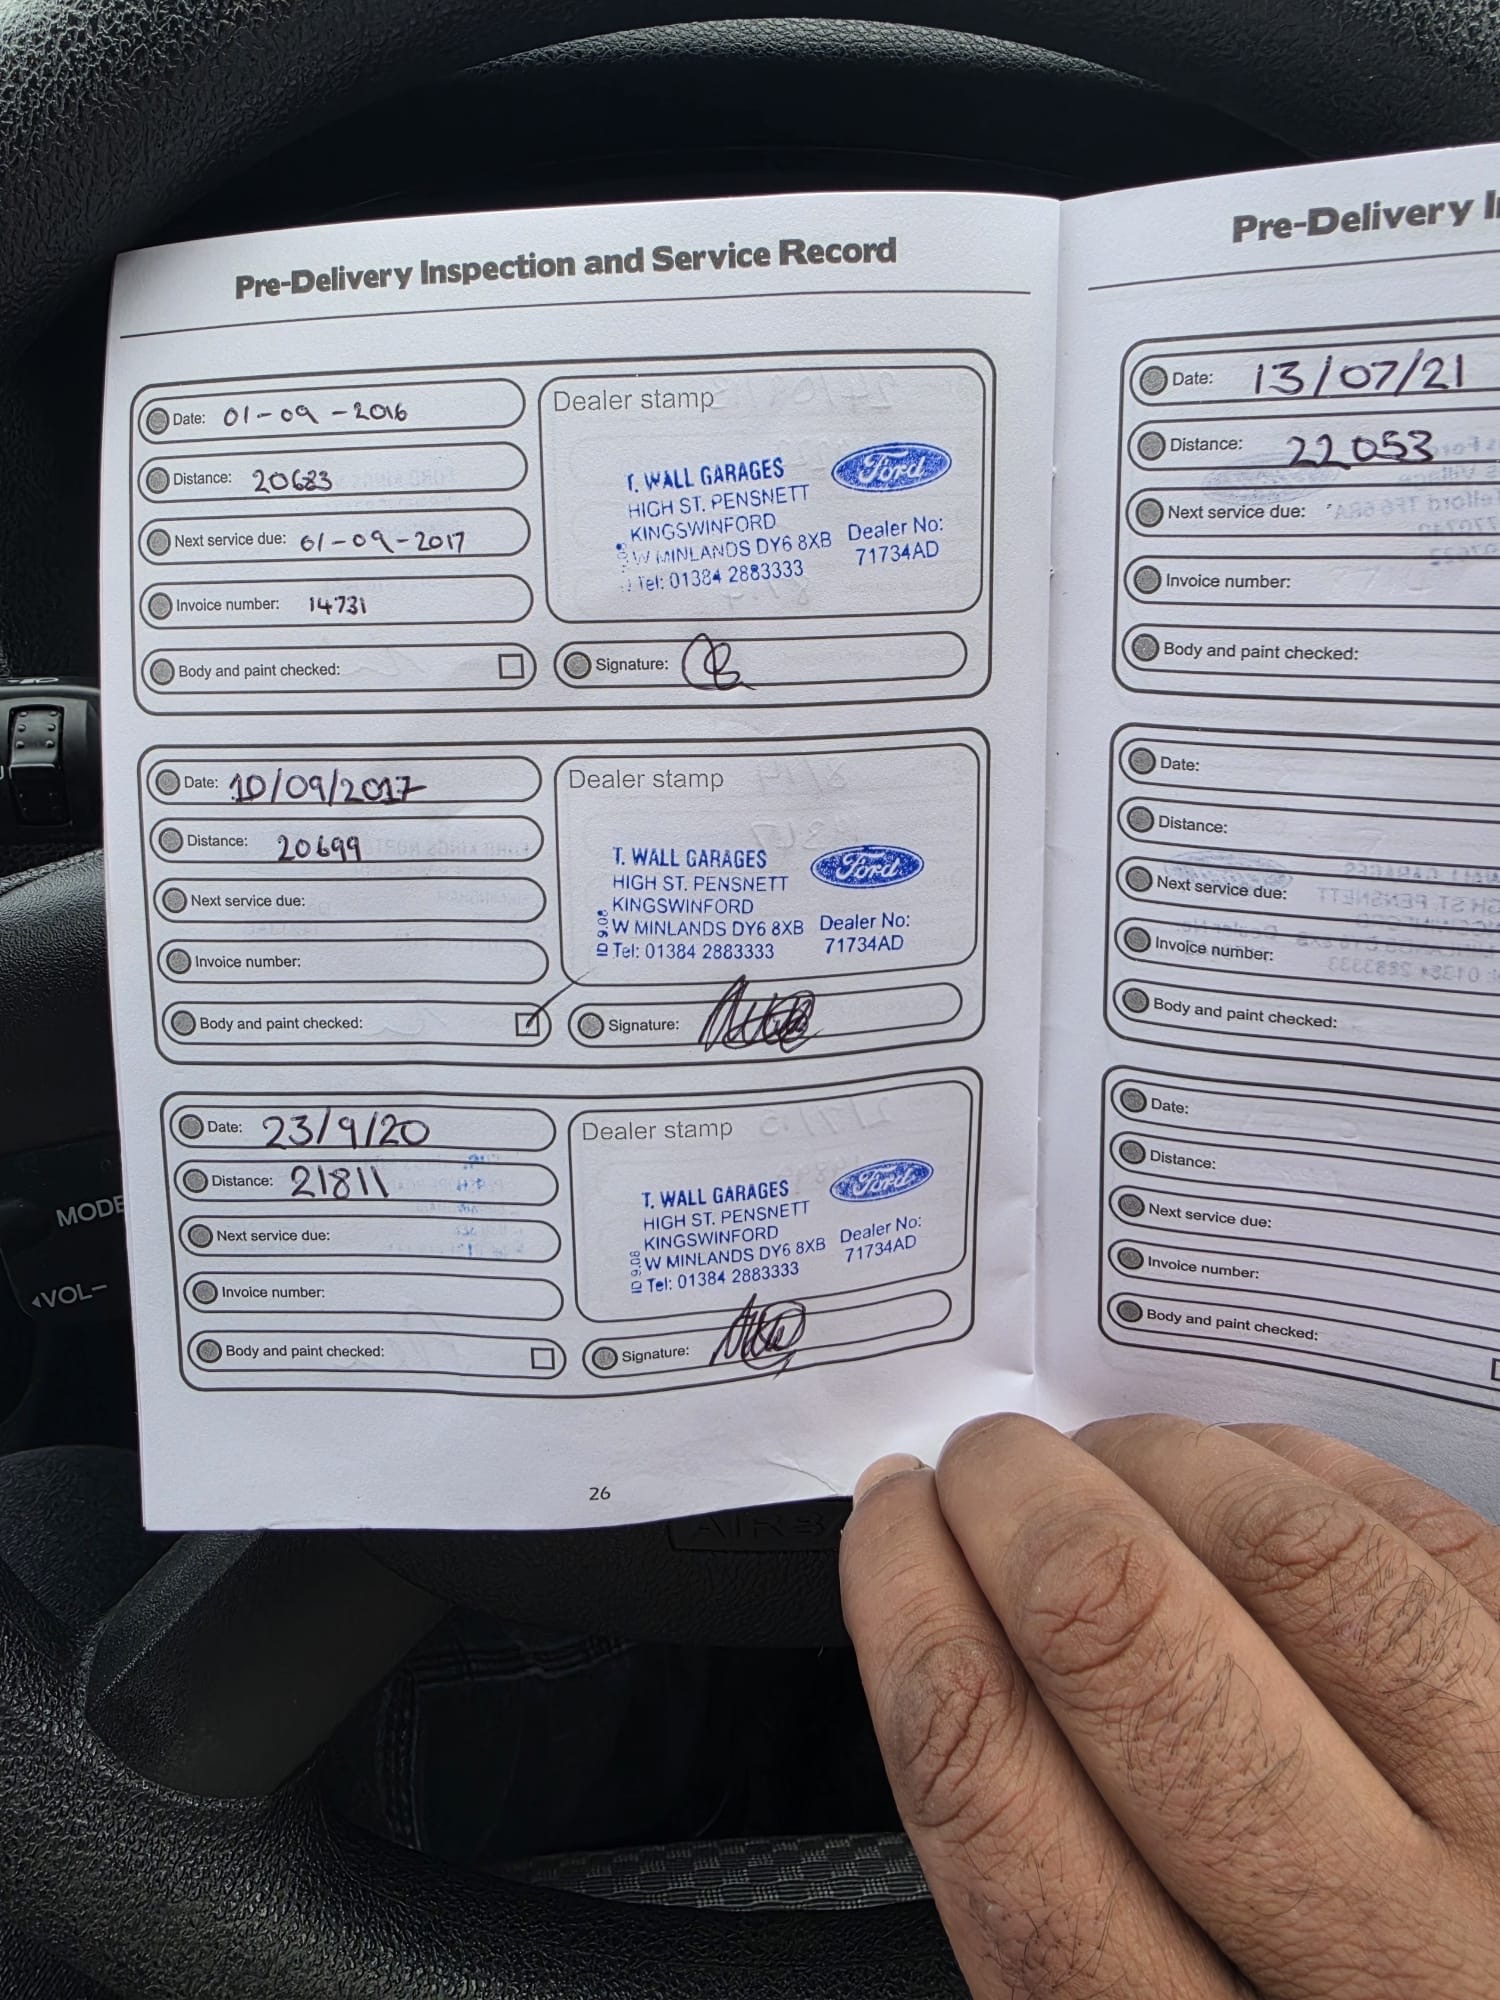 Pre-Delivery Inspection and Service Record
Date: 01-09-2016
Distance: 20683
Next service due: 01-09-2017
Invoice number: 14731
Body and paint checked:
Dealer stamp
T. WALL GARAGES
HIGH ST. PENSNETT
KINGSWINFORD
W MINLANDS DY6 8XB
Tel: 01384 2883333
Ford
Dealer No:
71734AD
Signature:
Date: 10/09/2017
Distance: 20699
Next service due:
Invoice number:
Body and paint checked:
Dealer stamp
T. WALL GARAGES
HIGH ST. PENSNETT
KINGSWINFORD
W MINLANDS DY6 8XB
Tel: 01384 2883333
ID 9.08
Ford
Dealer No:
71734AD
Signature:
Date: 23/9/20
Distance: 21811
Next service due:
Invoice number:
Body and paint checked:
Dealer stamp
T. WALL GARAGES
HIGH ST. PENSNETT
KINGSWINFORD
W MINLANDS DY6 8XB
Tel: 01384 2883333
ID 9.08
Ford
Dealer No:
71734AD
Signature:
26
Pre-Delivery
Date: 13/07/21
Distance: 22053
Next service due:
Invoice number:
Body and paint checked:
Date:
Distance:
Next service due:
Invoice number:
Body and paint checked:
Date:
Distance:
Next service due:
Invoice number:
Body and paint checked:
MODE
VOL-